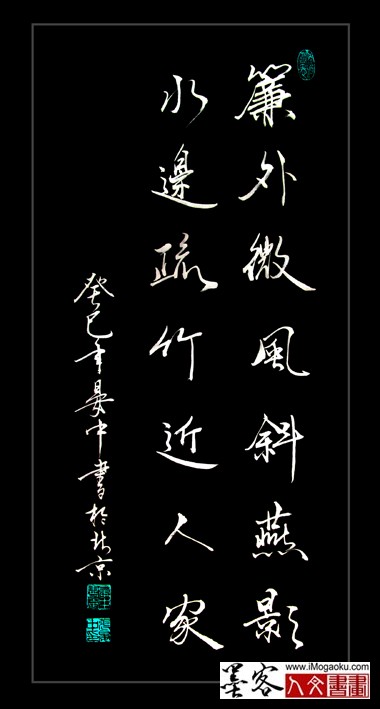 簾外微風斜燕影
水邊疏竹近人家
癸巳年晏中書於北京
www.iMogaoku.com
墨客人文書畫